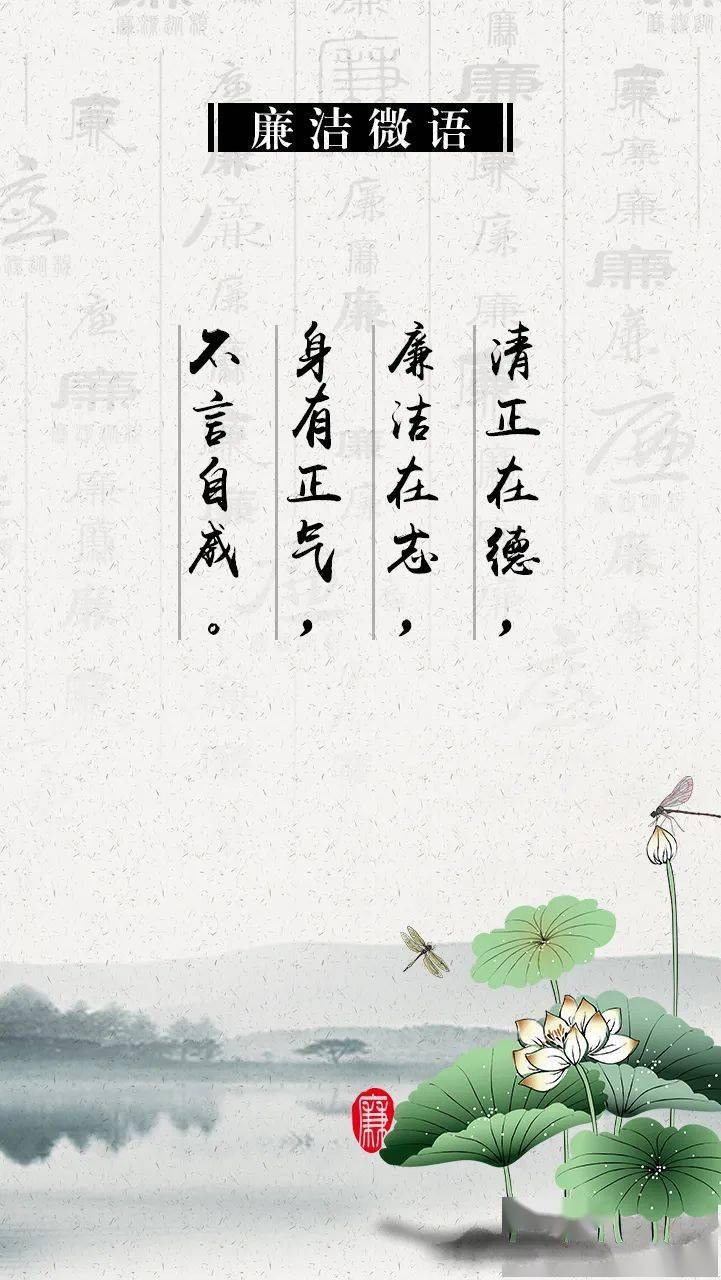 廉洁微语
清正在德，
廉洁在志，
身有正气，
不言自威。
廉